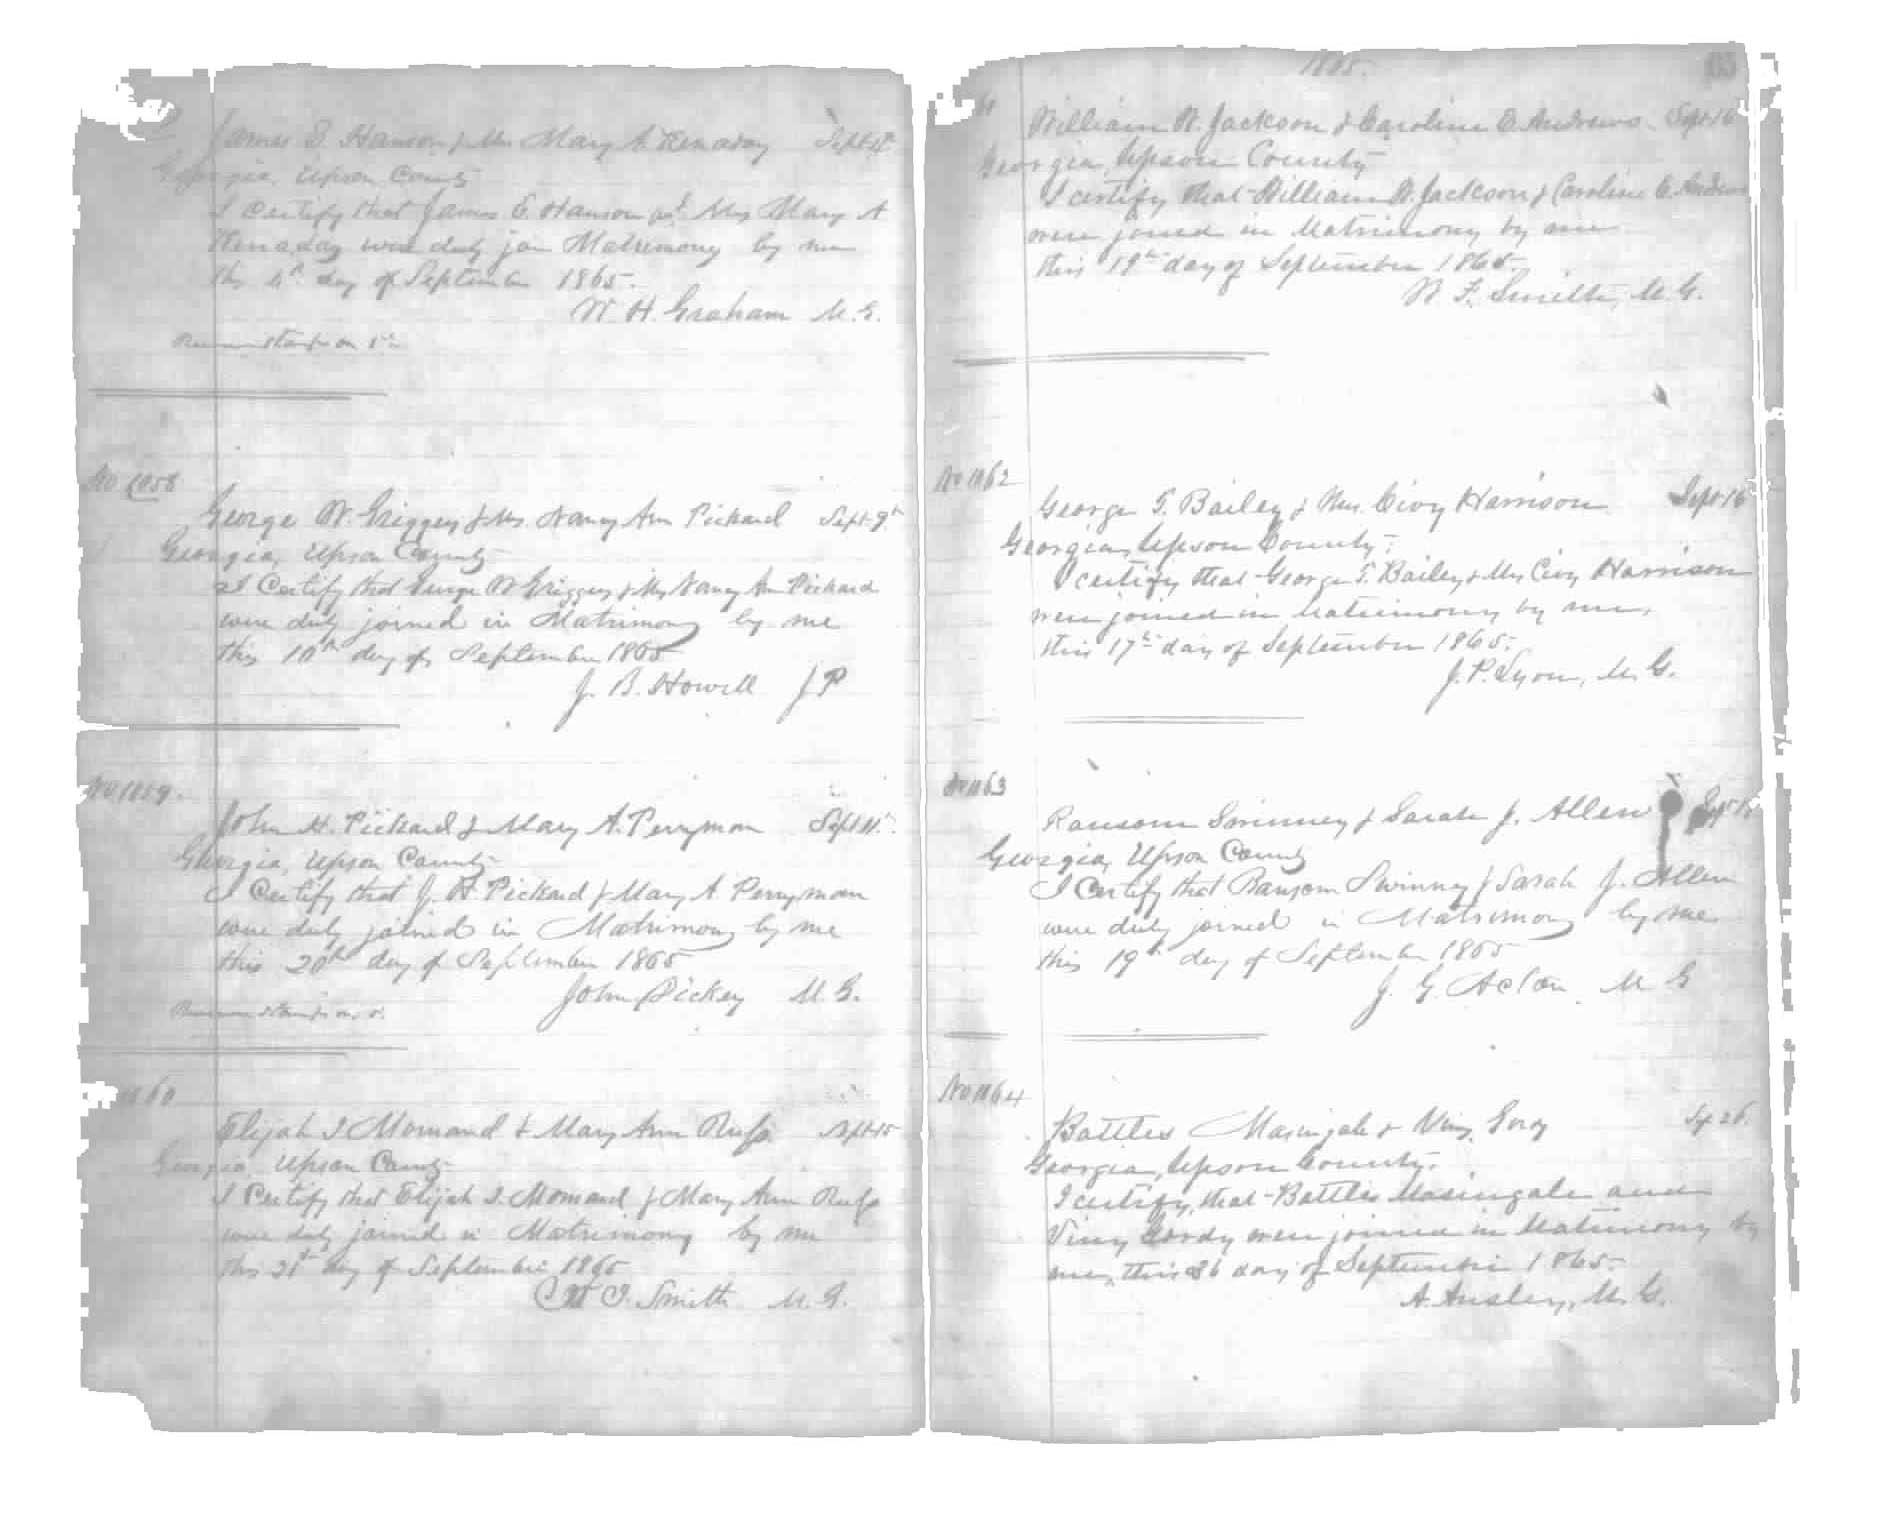 James E. Hanson & Mrs Mary A Kenaday Sept 4th
Georgia, Upson County
I Certify that James E. Hanson and Mrs Mary A
Kenaday were duly join Matrimony by me
this 4th day of September 1865.
W. H. Graham M.G.
Revenue stamp on
No 1058
George W. Griggers & Mrs. Nancy Ann Pickard Sept 9th
Georgia, Upson County
I Certify that George W Griggers & Mrs Nancy Ann Pickard
were duly joined in Matrimony by me
this 10th day of September 1865
J. B. Howell J P
No 1059.
John H. Pickard & Mary A. Perryman Sept 11th
Georgia, Upson County
I Certify that J. H Pickard & Mary A Perryman
were duly joined in Matrimony by me
this 20th day of September 1865
John Dickey M. G.
Revenue stamp on
60
Elijah I Momand & Mary Ann Russ Sept 15
Georgia, Upson County
I Certify that Elijah I. Momand & Mary Ann Russ
were duly joined in Matrimony by me
this 21st day of September 1865
Smith M. G.
1865.
William W. Jackson & Caroline E. Andrews Sept 16
Georgia, Upson County
I certify that William W. Jackson & Caroline E. Andrews
were joined in Matrimony by me
this 19th day of September 1865
W. F. Smith, M.G.
No 1162
George T. Bailey & Mrs. Civy Harrison Sept 16
Georgia, Upson County.
I certify that George T. Bailey & Mrs Civy Harrison
were joined in Matrimony by me,
this 17th day of September 1865.
J. P. Lyon, M. G.
No 1163
Ransom Swinney & Sarah J. Allen Sept
Georgia, Upson County
I Certify that Ransom Swinney & Sarah J. Allen
were duly joined in Matrimony by me
this 19th day of September 1865
J. G. Acton M G
No 1164
Battles Masingale & Viny Gordy Sep 26.
Georgia, Upson County.
I certify, that Battles Masingale and
Viny Gordy were joined in Matrimony by
me, this 26 day of September 1865
A. Ansley, M. G.